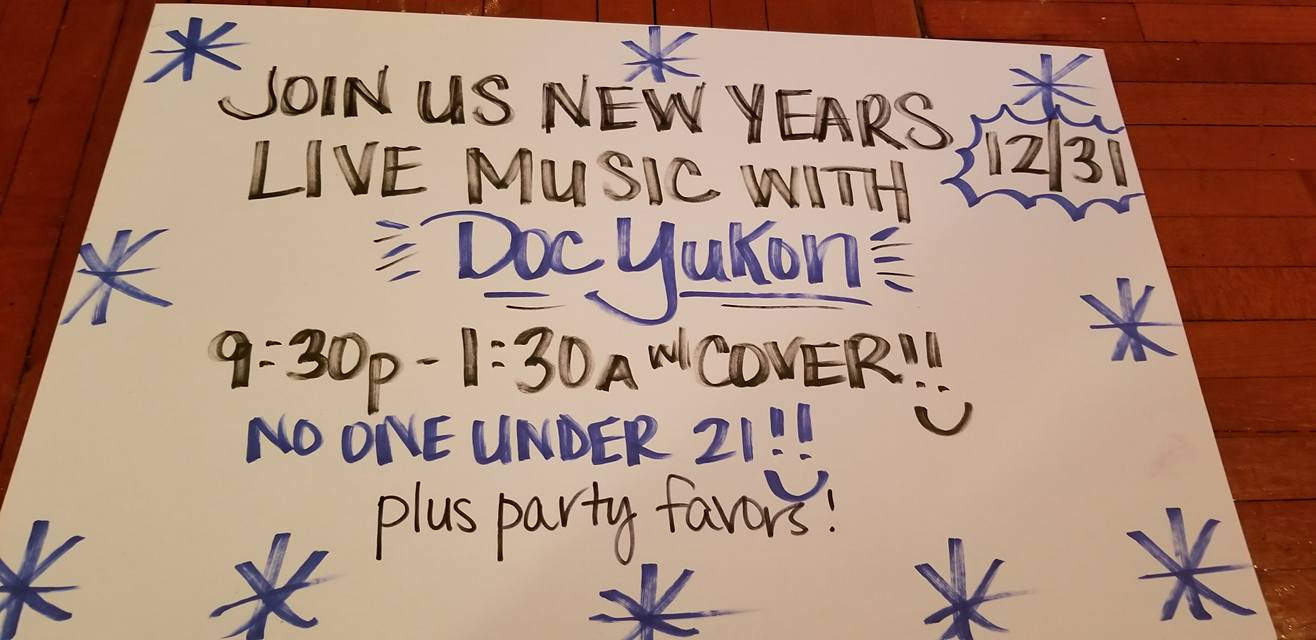 JOIN US NEW YEARS
12/31
LIVE MUSIC WITH
Doc Yukon
9:30p - 1:30A w/ COVER!!
NO ONE UNDER 21!!
plus party favors!